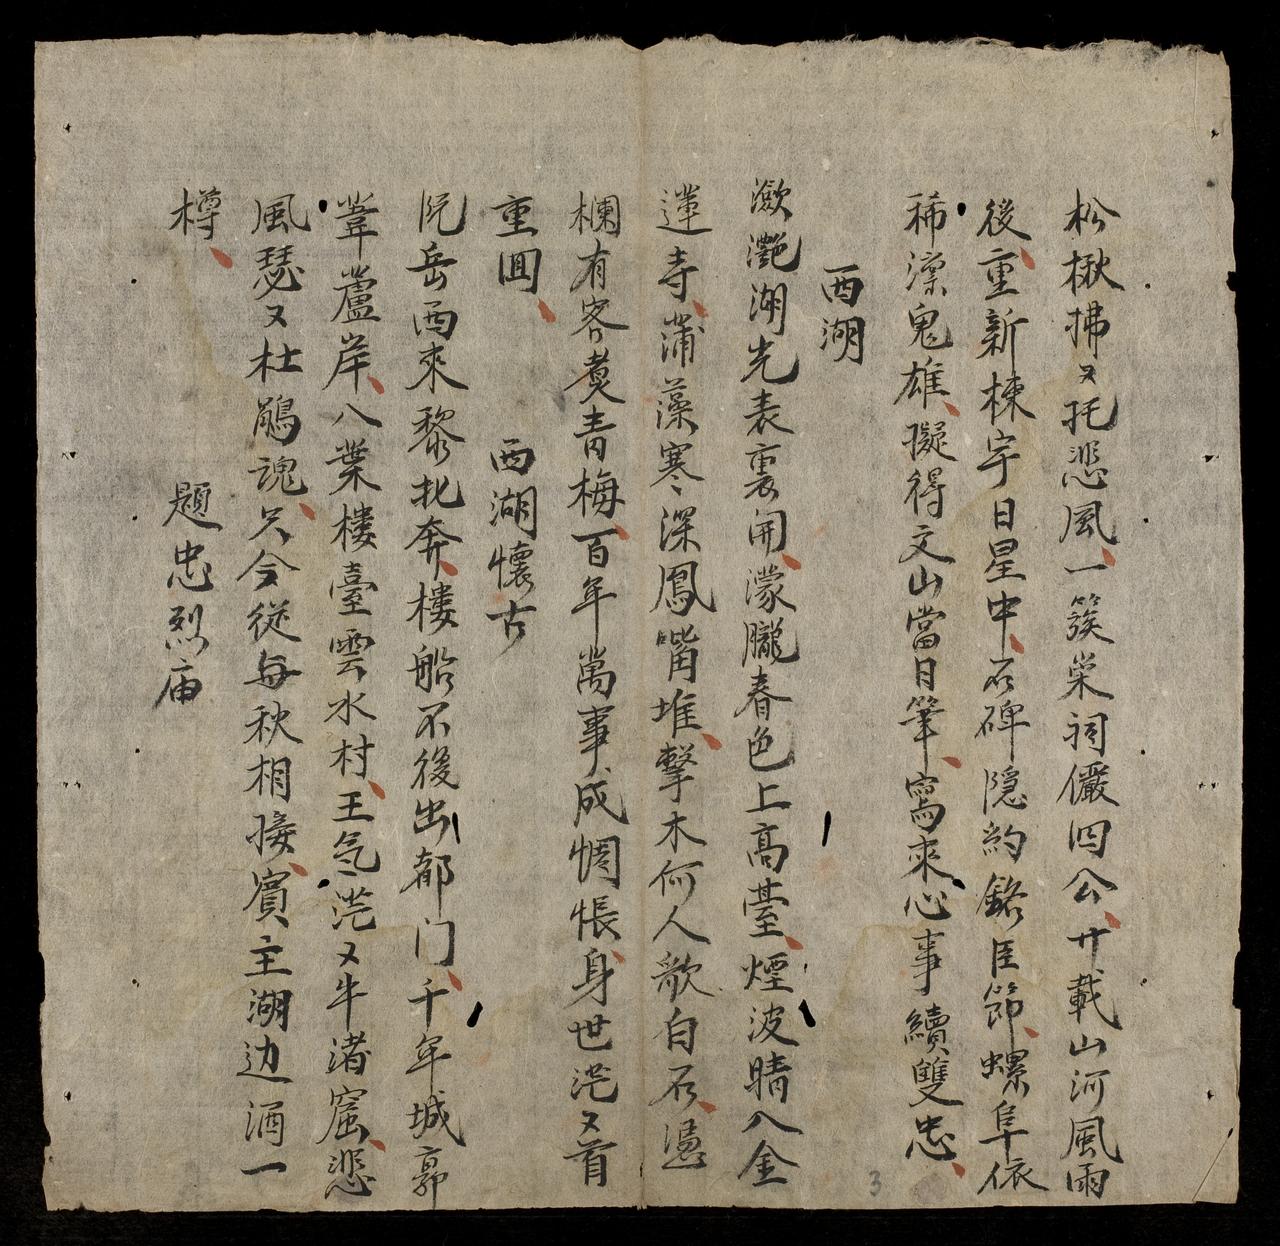 松楸拂〻托悲風一簇巢祠儼四公廿載山河風雨
後重新棟宇日星中石碑隱約銘臣節螺阜依
稀漂鬼雄擬得文山當日筆寫來心事續雙忠
西湖
瀲灔湖光表裏開濛朧春色上高臺煙波晴入金
蓮寺蒲藻寒深鳳嘴堆擊木何人歌白石憑
欄有客煑青梅百年萬事成惆悵身世茫〻首
重囬
西湖懷古
阮岳西來黎北奔樓船不復出都门千年城郭
葦蘆岸八葉樓臺雲水村王气茫〻牛渚窟悲
風瑟〻杜鵑魂只今從每秋相接賓主湖边酒一
樽
題忠烈庙
3